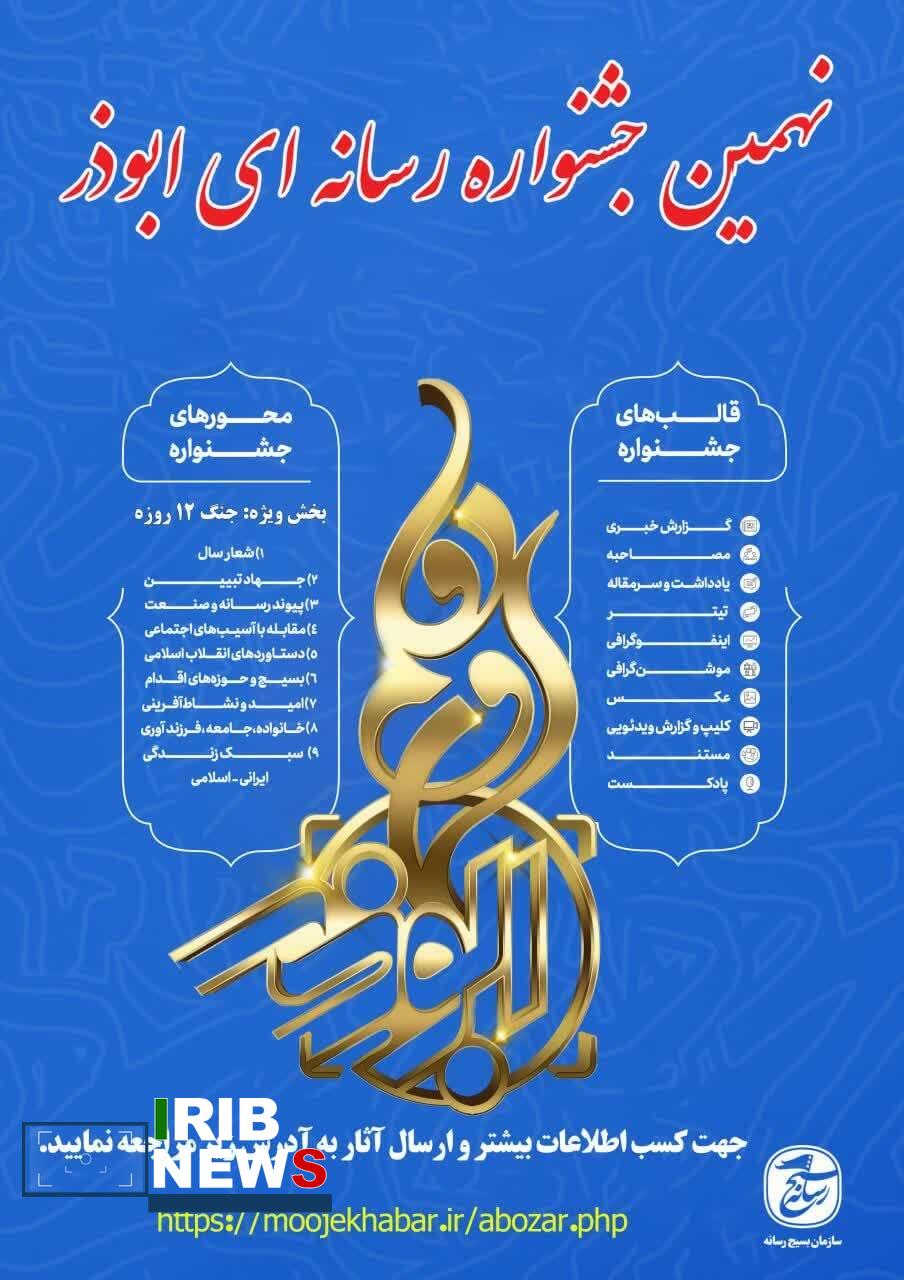 نهمین جشنواره رسانه ای ابوذر
قالب‌های
جشنواره
گزارش خبری
مصاحبه
یادداشت و سرمقاله
تیتر
اینفوگرافی
موشن‌گرافی
عکس
کلیپ و گزارش ویدئویی
مستند
پادکست
محورهای
جشنواره
بخش ویژه: جنگ ۱۲ روزه
۱) شعار سال
۲) جهاد تبیین
۳) پیوند رسانه و صنعت
۴) مقابله با آسیب‌های اجتماعی
۵) دستاوردهای انقلاب اسلامی
۶) بسیج و حوزه‌های اقدام
۷) امید و نشاط‌آفرینی
۸) خانواده، جامعه، فرزندآوری
۹) سبک زندگی
ایرانی - اسلامی
جهت کسب اطلاعات بیشتر و ارسال آثار به آدرس زیر مراجعه نمایید.
IRIB
NEWS
https://moojekhabar.ir/abozar.php
بسیج رسانه
سازمان بسیج رسانه